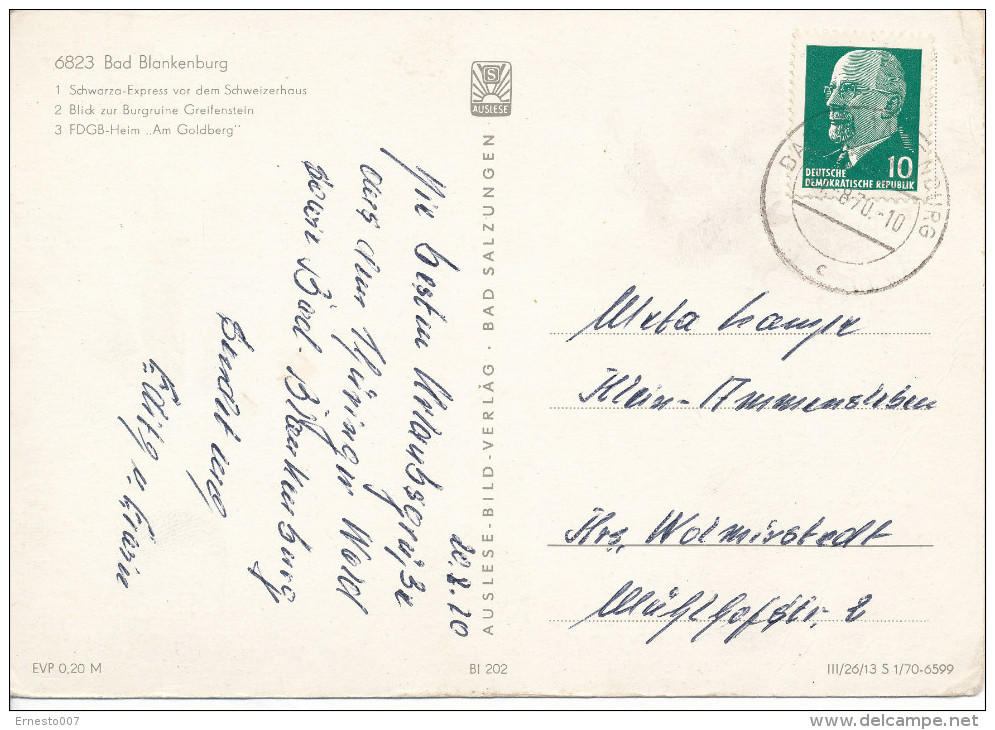 6823 Bad Blankenburg
1 Schwarza-Express vor dem Schweizerhaus
2 Blick zur Burgruine Greifenstein
3 FDGB-Heim „Am Goldberg"
S
AUSLESE
AUSLESE-BILD-VERLAG · BAD SALZUNGEN
10
DEUTSCHE
DEMOKRATISCHE REPUBLIK
8.70.-10
c
20.8.70
Die besten Urlaubsgrüße
aus dem Thüringer Wald
Bad-Blankenburg
sendet
Meta
Klein-Ammensleben
Krs. Wolmirstedt
Mühlhofstr. 2
EVP 0,20 M
BI 202
III/26/13 S 1/70-6599
Ernesto007
delcampe.net